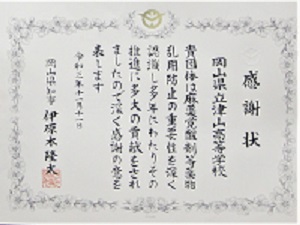 感謝状
岡山県立津山高等学校
貴団体は麻薬覚醒剤等薬物
乱用防止の重要性を深く
認識し多年にわたりその
推進に多大の貢献をされ
ましたので深く感謝の意を
表します
令和三年十一月十一日
岡山県知事 伊原木隆太